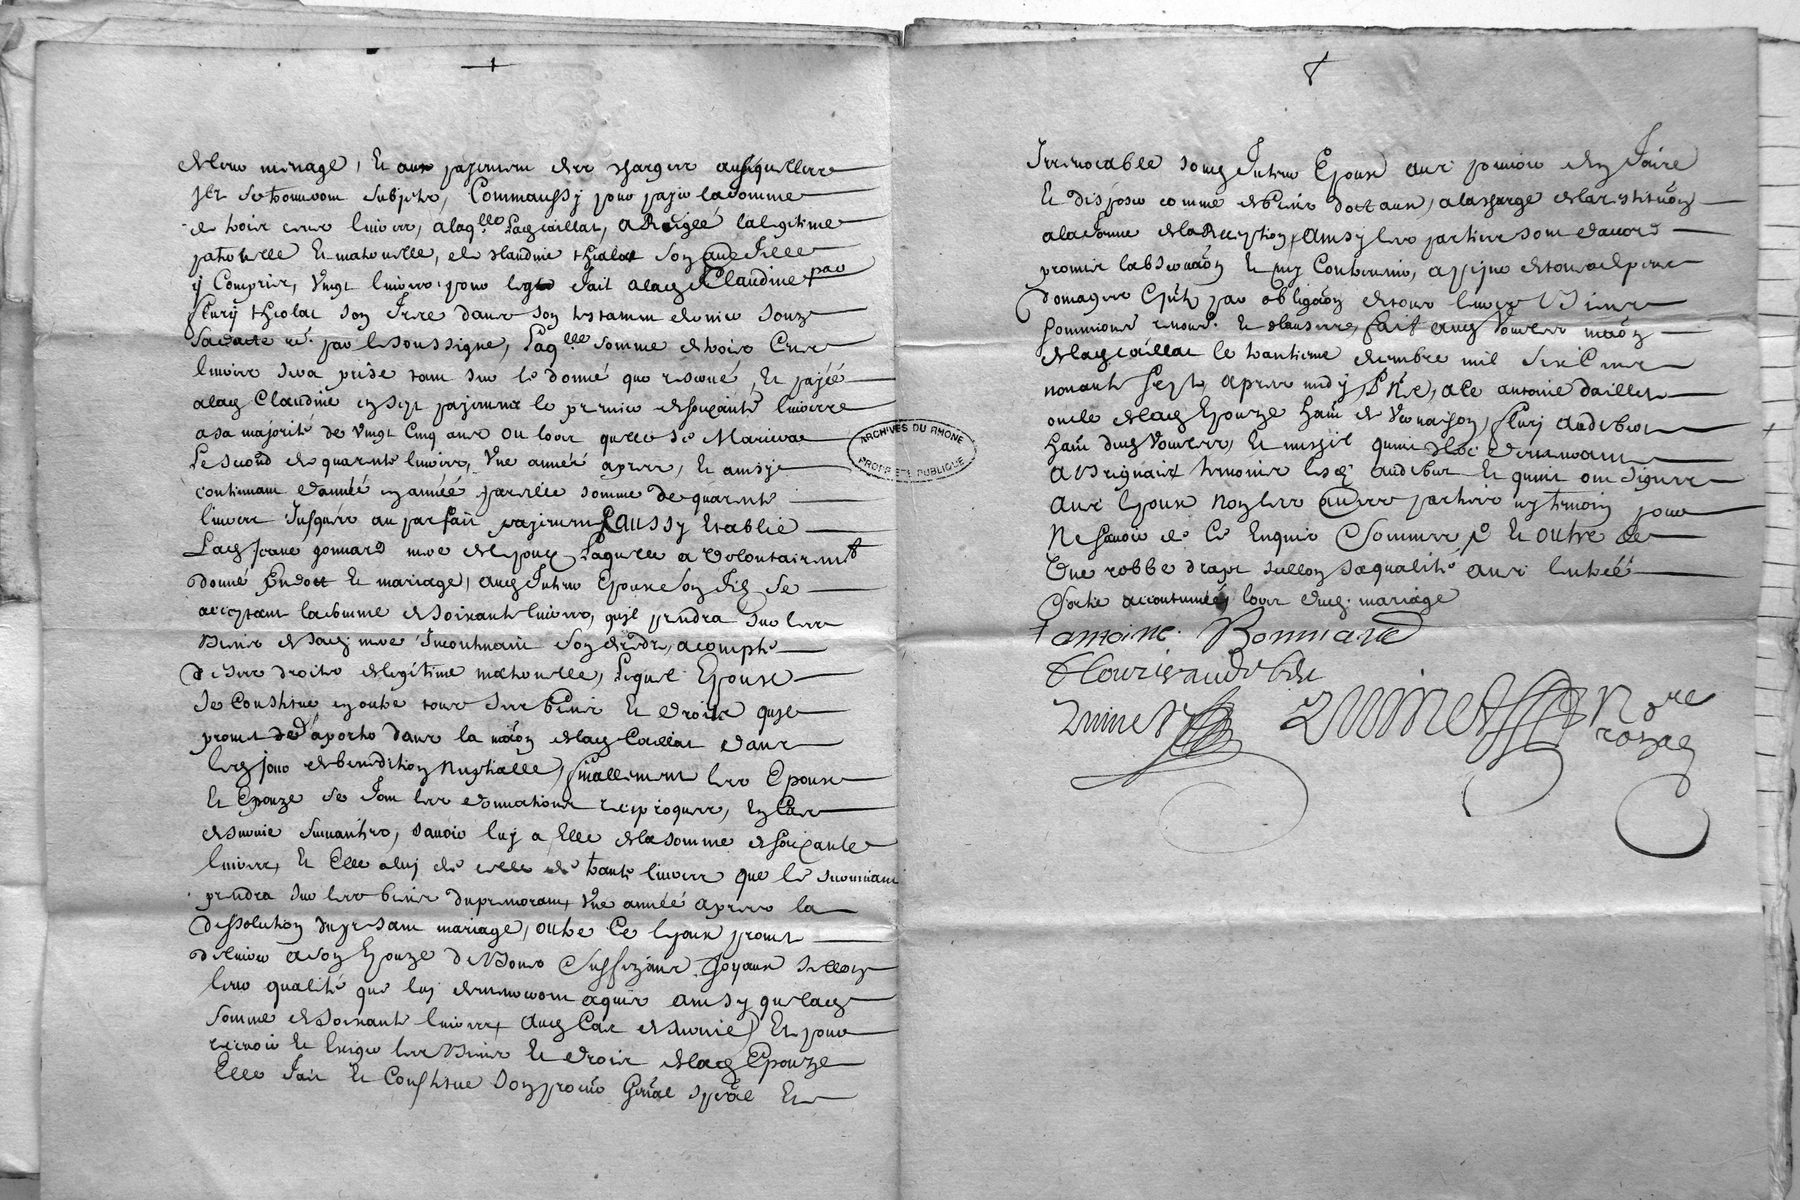 de leur menage, Et aux payement des charges ausquelles
ils se treuveront subjets, Comm'aussy pour payer la somme
de trois cens livres, a laq.lle lad. caillat, a Reiglée la legitime
paternelle Et maternelle, de claudine thiolat son autre fille
y Compris, Vingt livres pour legat fait a lad. Claudine par
fleury thiolat son frere dans son testament dernier soubz
sa datte re. par le soussigné, Laq.lle somme de trois Cens
livres sera prise tant sur le donné que reservé, Et payée
a lad. Claudine en sept payements le premier de soixante livres
a sa majorité de vingt Cinq ans ou lors qu'elle se Mariera
Le second de quarante livres, Une année apres, Et ainsy
continuant d'année en année pareille somme de quarante
livres Jusques au parfait payement, aussy Establie
Lad. Jeane gonnard mere de l'epoux Laquelle a volontairemt
donné En dott Et mariage, aud. futur Epoux son fils se
acceptant la somme de soixante livres, qu'il prendra sur les
Biens de sad. mere Incontinant son deces, a compte
de ses droits de legitime maternelle, Lequel Epoux
se Constitue en outre tous ses biens Et droits qu'il
promet d'aporter dans la maôn de lad. Caillat dans
le jour de benediction Nuptialle, finallement les Epoux
Et Epouze se font les donnations reciproques, En Cas
de survie suivantes, savoir luy a Elle de la somme de soixante
livres, Et Elle a luy de celle de trante livres que le survivant
prendra sur les biens du premourant Une année apres la
dissolution du present mariage, outre Ce l'epoux promet
delivrer a son Epouze de Bons Suffizans Joyaux sellon
leur qualité que luy demeureront aquis ainsy que lad.
somme de soixante livres aud. Cas de survie, Et pour
recevoir Et Exiger les Biens Et droits de lad. Epouze
Elle fait Et Constitue son procur Gnâl speâl Et
Irrevocable sond. futur Epoux avec pouvoir d'en faire
Et disposer comme de biens dottaux, a la charge de la restituôn
a la forme de la Reception, ainsy les parties sont d'accord
promis l'observaôn Et n'y Contrevenir, a peyne de tous despens
domages Et par obligaôn de tous leurs Biens
soumissions renonc. Et clauses, fait aud. Vourles maôn
de lad. caillat le trantieme decembre mil six Cens
nonante sept, apres midy, Pñts, a ce antoine daillet
oncle de lad. Epouze hañt de Vernaison, fleury audebert
hañt dud. Vourles, Et messire quinet clerc demeurant
a Brignais tesmoins lesq. audebert Et quinet ont signes
avec l'epoux non les autres parties ny temoin pour
Ne savoir de Ce Enquis Sommes, Et outre de
Une robbe drapt sellon sa qualité avec l'entrée
Sortie accoutumées lors dud. mariage
antoine Bonniard
flourieaudeber
Quinet
Quinet Nore
royal
ARCHIVES DU RHONE
PROPRIETE PUBLIQUE